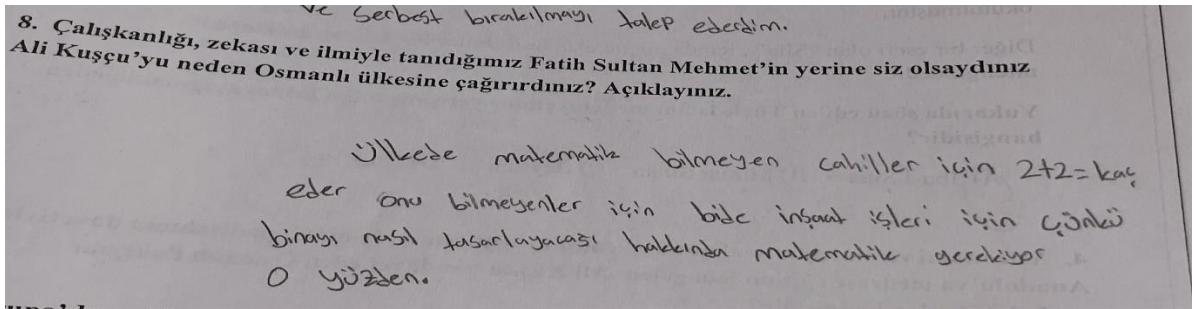 ve serbest bırakılmayı talep ederdim.
8. Çalışkanlığı, zekası ve ilmiyle tanıdığımız Fatih Sultan Mehmet'in yerine siz olsaydınız
Ali Kuşçu'yu neden Osmanlı ülkesine çağırırdınız? Açıklayınız.
Ülkede matematik bilmeyen cahiller için 2+2= kaç
eder onu bilmeyenler için bide inşaat işleri için çünkü
binayı nasıl tasarlayacağı hakkında matematik gerekiyor
O yüzden.